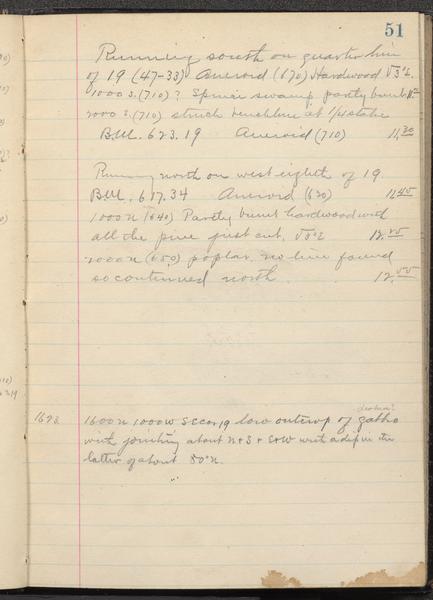 51
Running south on quarter line
of 19 (47-33) Aneroid (670) Hardwood V3°E
1000 S. (710)? Spruce swamp partly burnt
2000 S. (710) struck benchline at 1/4 stake
B.M. 623.19 Aneroid (710) 11.30
Running north on west eighth of 19.
B.M. 617.34 Aneroid (620) 11.45
1000 N (640) Partly burnt hardwood with
all the pine just cut. V3°E 12.25
2000 N (650) poplar. no line found
so continued north. 12.55
1600 N 1000 W SE cor 19 low outcrop of gabbro
with jointing about N + S + E + W with a dip in the
latter of about 80° N.